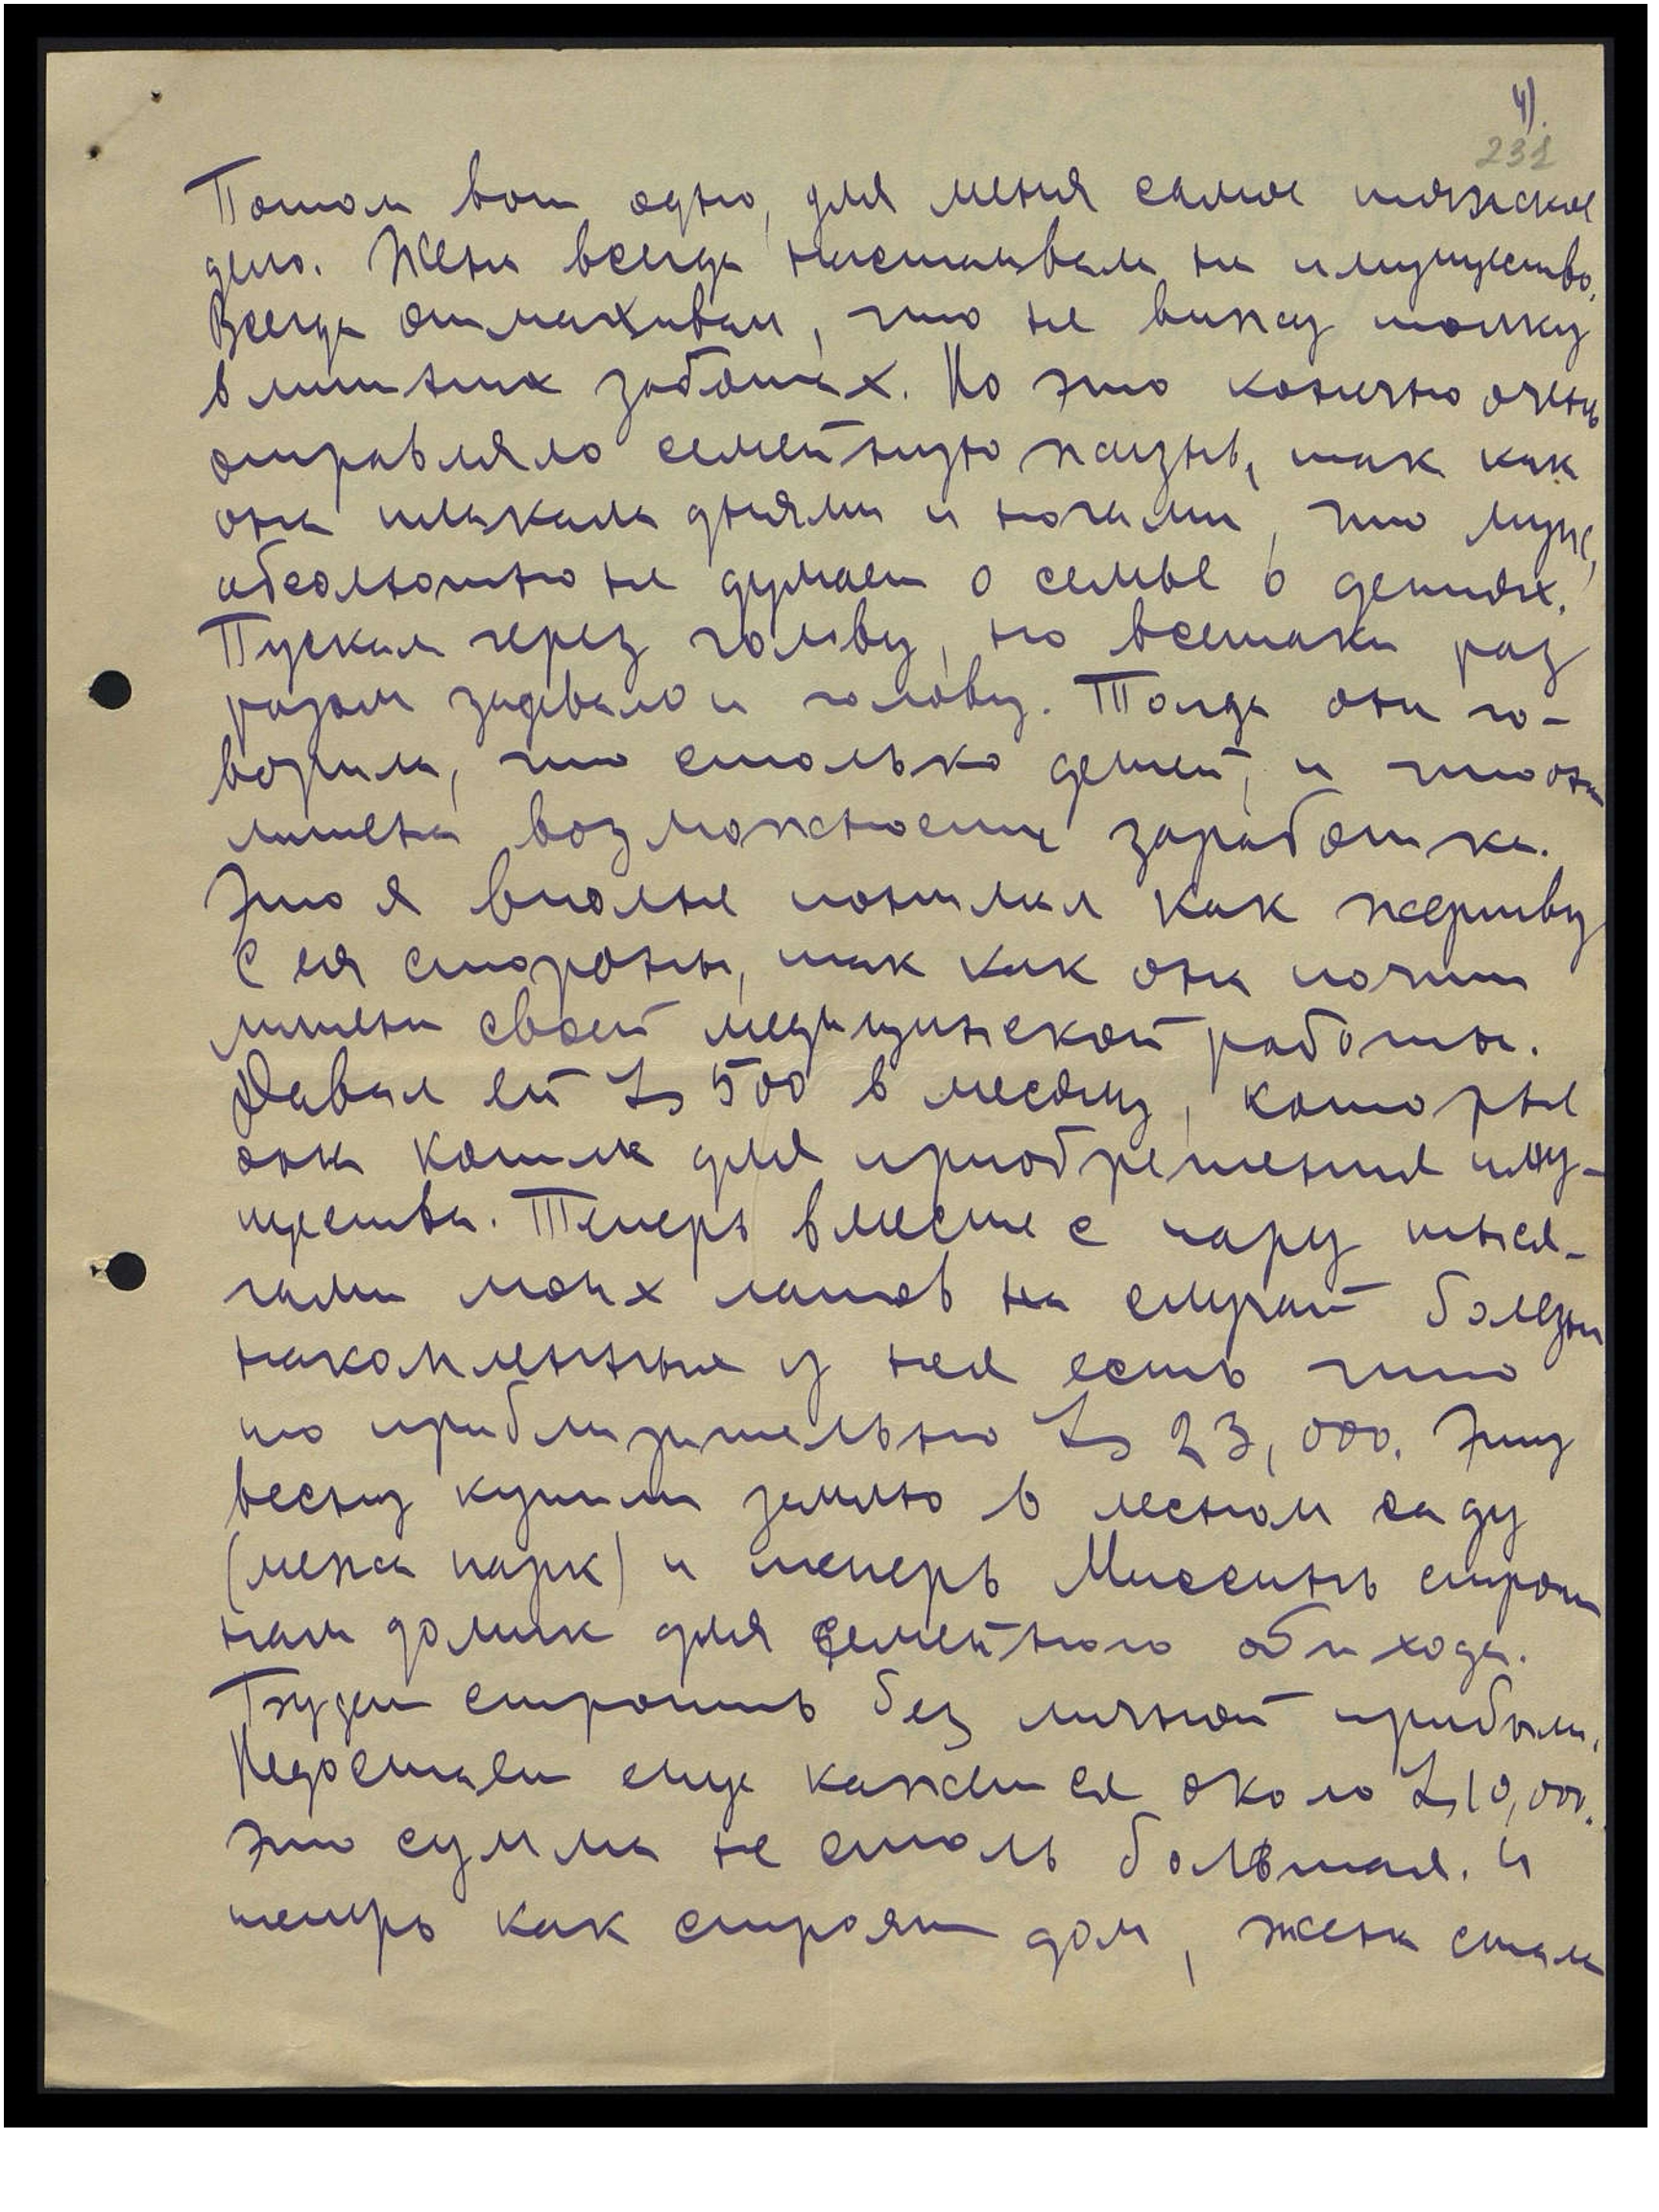 4).
231
Потом вот одно, для меня самое тяжское
дело. Жена всегда настаивала на имущество.
Всегда отмахивал, что не вижу толку
в лишних заботах. Но это конечно очень
отравляло семейную жизнь, так как
она плакала днями и ночами, что муж,
абсолютно не думает о семье о детях.
Пускал через голову, но всетаки раз
разом задевало и голову. Тогда она го-
ворила, что столько детей, и что она
лишена возможности заработка.
Это я вполне понимал как жертву
с ея стороны, так как она почти
лишена своей медицинской работы.
Давал ей Ls 500 в месяц, которые
она копила для приобретения иму-
щества. Теперь вместе с пару тыся-
чами моих латов на случай болезни
накопленные у нея есть что
то приблизительно Ls 23,000. Эту
весну купили землю в лесном саду
(межа парк) и теперь Миссинь строит
нам домик для семейного обихода.
Будет строить без личной прибыли.
Недостает еще кажется около Ls 10,000.
Это сумма не столь большая. И
теперь как строят дом, жена стала